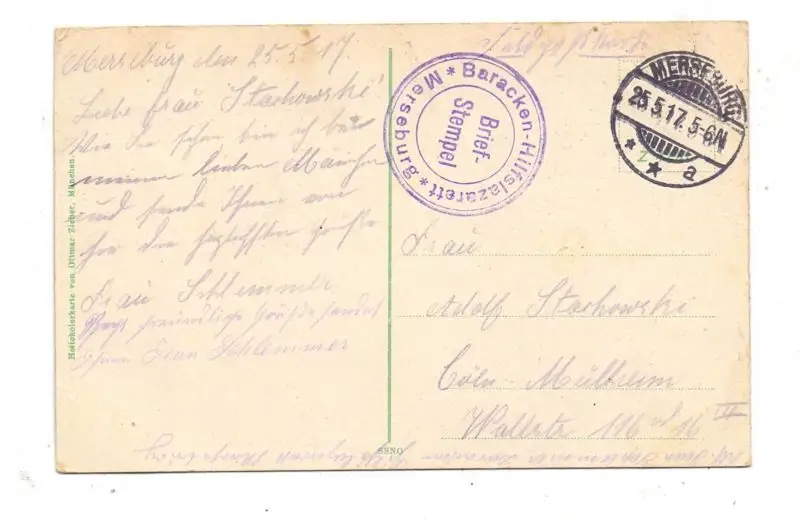 Merseburg den 25.5.17.
Liebe Frau Stachowski!
Wie Sie sehen bin ich bei
meinem lieben
und sende Ihnen von
hier die herzlichsten Grüße
Frau Schlemmer
freundliche Grüße sendet
Ihnen Frau Schlemmer
Feldpostkarte
* Baracken-Hilfslazarett * Merseburg
Brief-
Stempel
MERSEBURG
25.5.17. 5-6N
* * a
Frau
Adolf Stachowski
Cöln-Mülheim
Wallstr 116
II
Hotiekolorkarte von Ottmar Zieher, München.
SENO